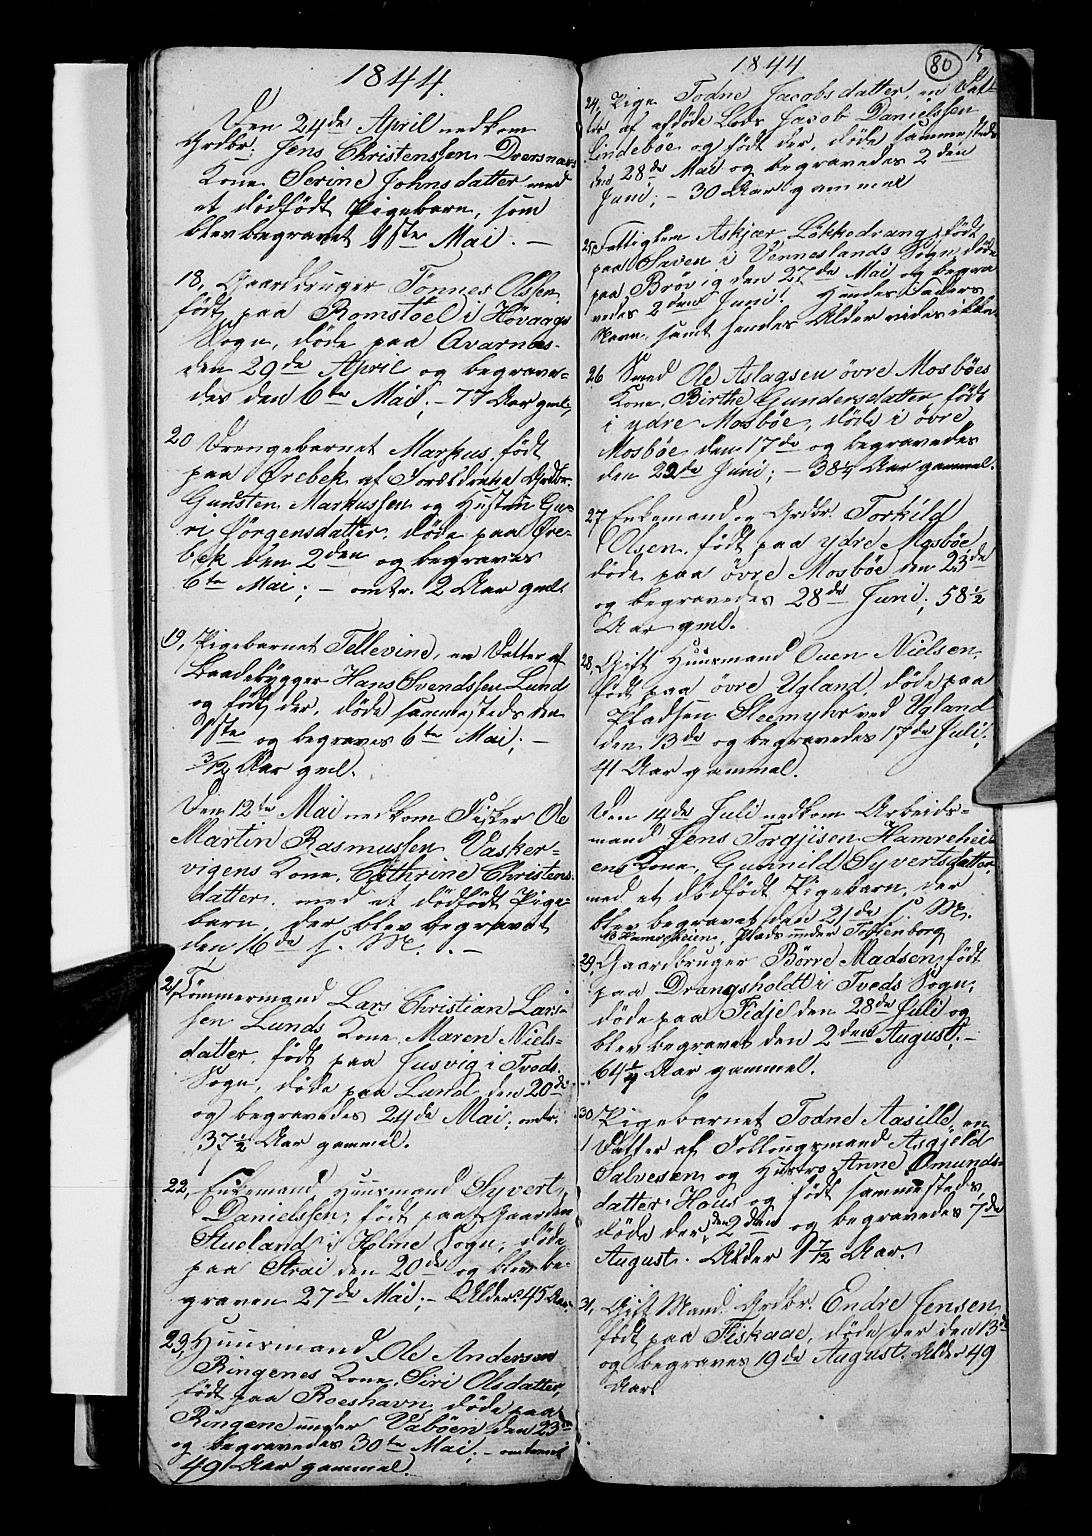 1844.
Den 24de April nedkom
Grdbr. Jens Christenssen Dversnæs
Kone Serine Johnsdatter med
et dødfødt Pigebarn, som
blev begravet 1ste Mai. —
18, Gaardbruger Tonnes Olssen,
født paa Romstøl i Høvaags
Sogn, døde paa Avarnæs
den 29de April og begrave-
des den 6te Mai; – 77 Aar gml,
20 Drengebarnet Markus, født
paa Ørebek af Forældrene Grdbr.
Gunsten Markussen og Hustru Gu-
ri Jørgensdatter, døde paa Øre-
bek den 2den og begraves
6te Mai; – omtr. 2 Aar gml.
19, Pigebarnet Tellevine, en Datter af
Baadebygger Hans Svendssen Lund
og født der, døde sammesteds den
1ste og begraves 6te Mai; –
3/12 Aar gml.
Den 12te Mai nedkom Fisker Ole
Martin Rasmussen Vasker-
vigens Kone, Cathrine Christens-
datter, med et dødfødt Pige-
barn, der blev begravet
den 16de s. M. . –
21, Tømmermand Lars Christian Lars-
sen Lunds Kone, Maren Niels-
datter, født paa Jusvig i Tveds
Sogn, døde paa Lund den 20de
og begravedes 24de Mai; omtr.
37½ Aar gammel.
22, Enkemand Huusmand Syvert
Danielssen, født paa Gaarden
Stueland i Holme Sogn, døde
paa Strai den 20de og blev be-
graven 27de Mai; – Alder 45 Aar
23, Huusmand Ole Andersen
Ringenes Kone, Siri Olsdatter,
født paa Roeshavn, døde paa
Ringene under Vaböen den 23de
og begravedes 30te Mai; –
49 Aar gammel.
80
15
1844
24, Pige Todne Jacobsdatter, en Dat-
ter af afdøde Lods Jacob Danielssen
Lindebøe og født der, døde sammesteds
den 28de Mai og begravedes 2den
Juni; – 30 Aar gammel
25, Fattiglem Askjær Løkkedrang, født
paa Saven i Venneslands Sogn, døde
paa Brøvig den 27de Mai og begra
vedes 2den Juni. Hendes Faders
Navn samt hendes Alder vides ikke.
26 Smed Ole Aslagsen øvre Mosbøes
Kone, Birthe Gundersdatter, født
i ydre Mosbøe, døde i øvre
Mosbøe den 17de og begravedes
den 22de Juni; – 38¼ Aar gammel.
27 Enkemand og Grdbr. Torkild
Olsen, født paa ydre Mosbøe,
døde paa øvre Mosbøe den 23de
og begravedes 28de Juni; 58½
Aar gml.
28, Gift Huusmand Ouen Nielsen,
født paa øvre Ugland, døde paa
Pladsen Sleemyhr ved Ugland
den 13de og begravedes 17de Juli;
41 Aar gammel.
Den 14de Juli nedkom Arbeids-
mand Jens Torgjisen Hamrehei-
ens Kone, Gunnild Syvertsdatter,
med et dødfødt Pigebarn, der
blev begravet den 21de s. M.
Hamreheien, Plads under Toftenborg
29, Gaardbruger Børre Madsen, født
paa Drangsholdt i Tveds Sogn,
døde paa Fidje den 28de Juli og
blev begravet den 2den August; –
64½ Aar gammel.
30 Pigebarnet Todne Aasille, en
Datter af Follougsmand Asgjeld
Salvesen og Hustro Anne Omunds-
datter Hous og født sammesteds
døde der, den 2den og begravedes 7de
August. Alder 1 7/12 Aar.
31, Gift Mand, Grdbr. Endre Jensen,
født paa Fiskaae, døde der den 13de
og begraves 19de August. Alder 49
Aar